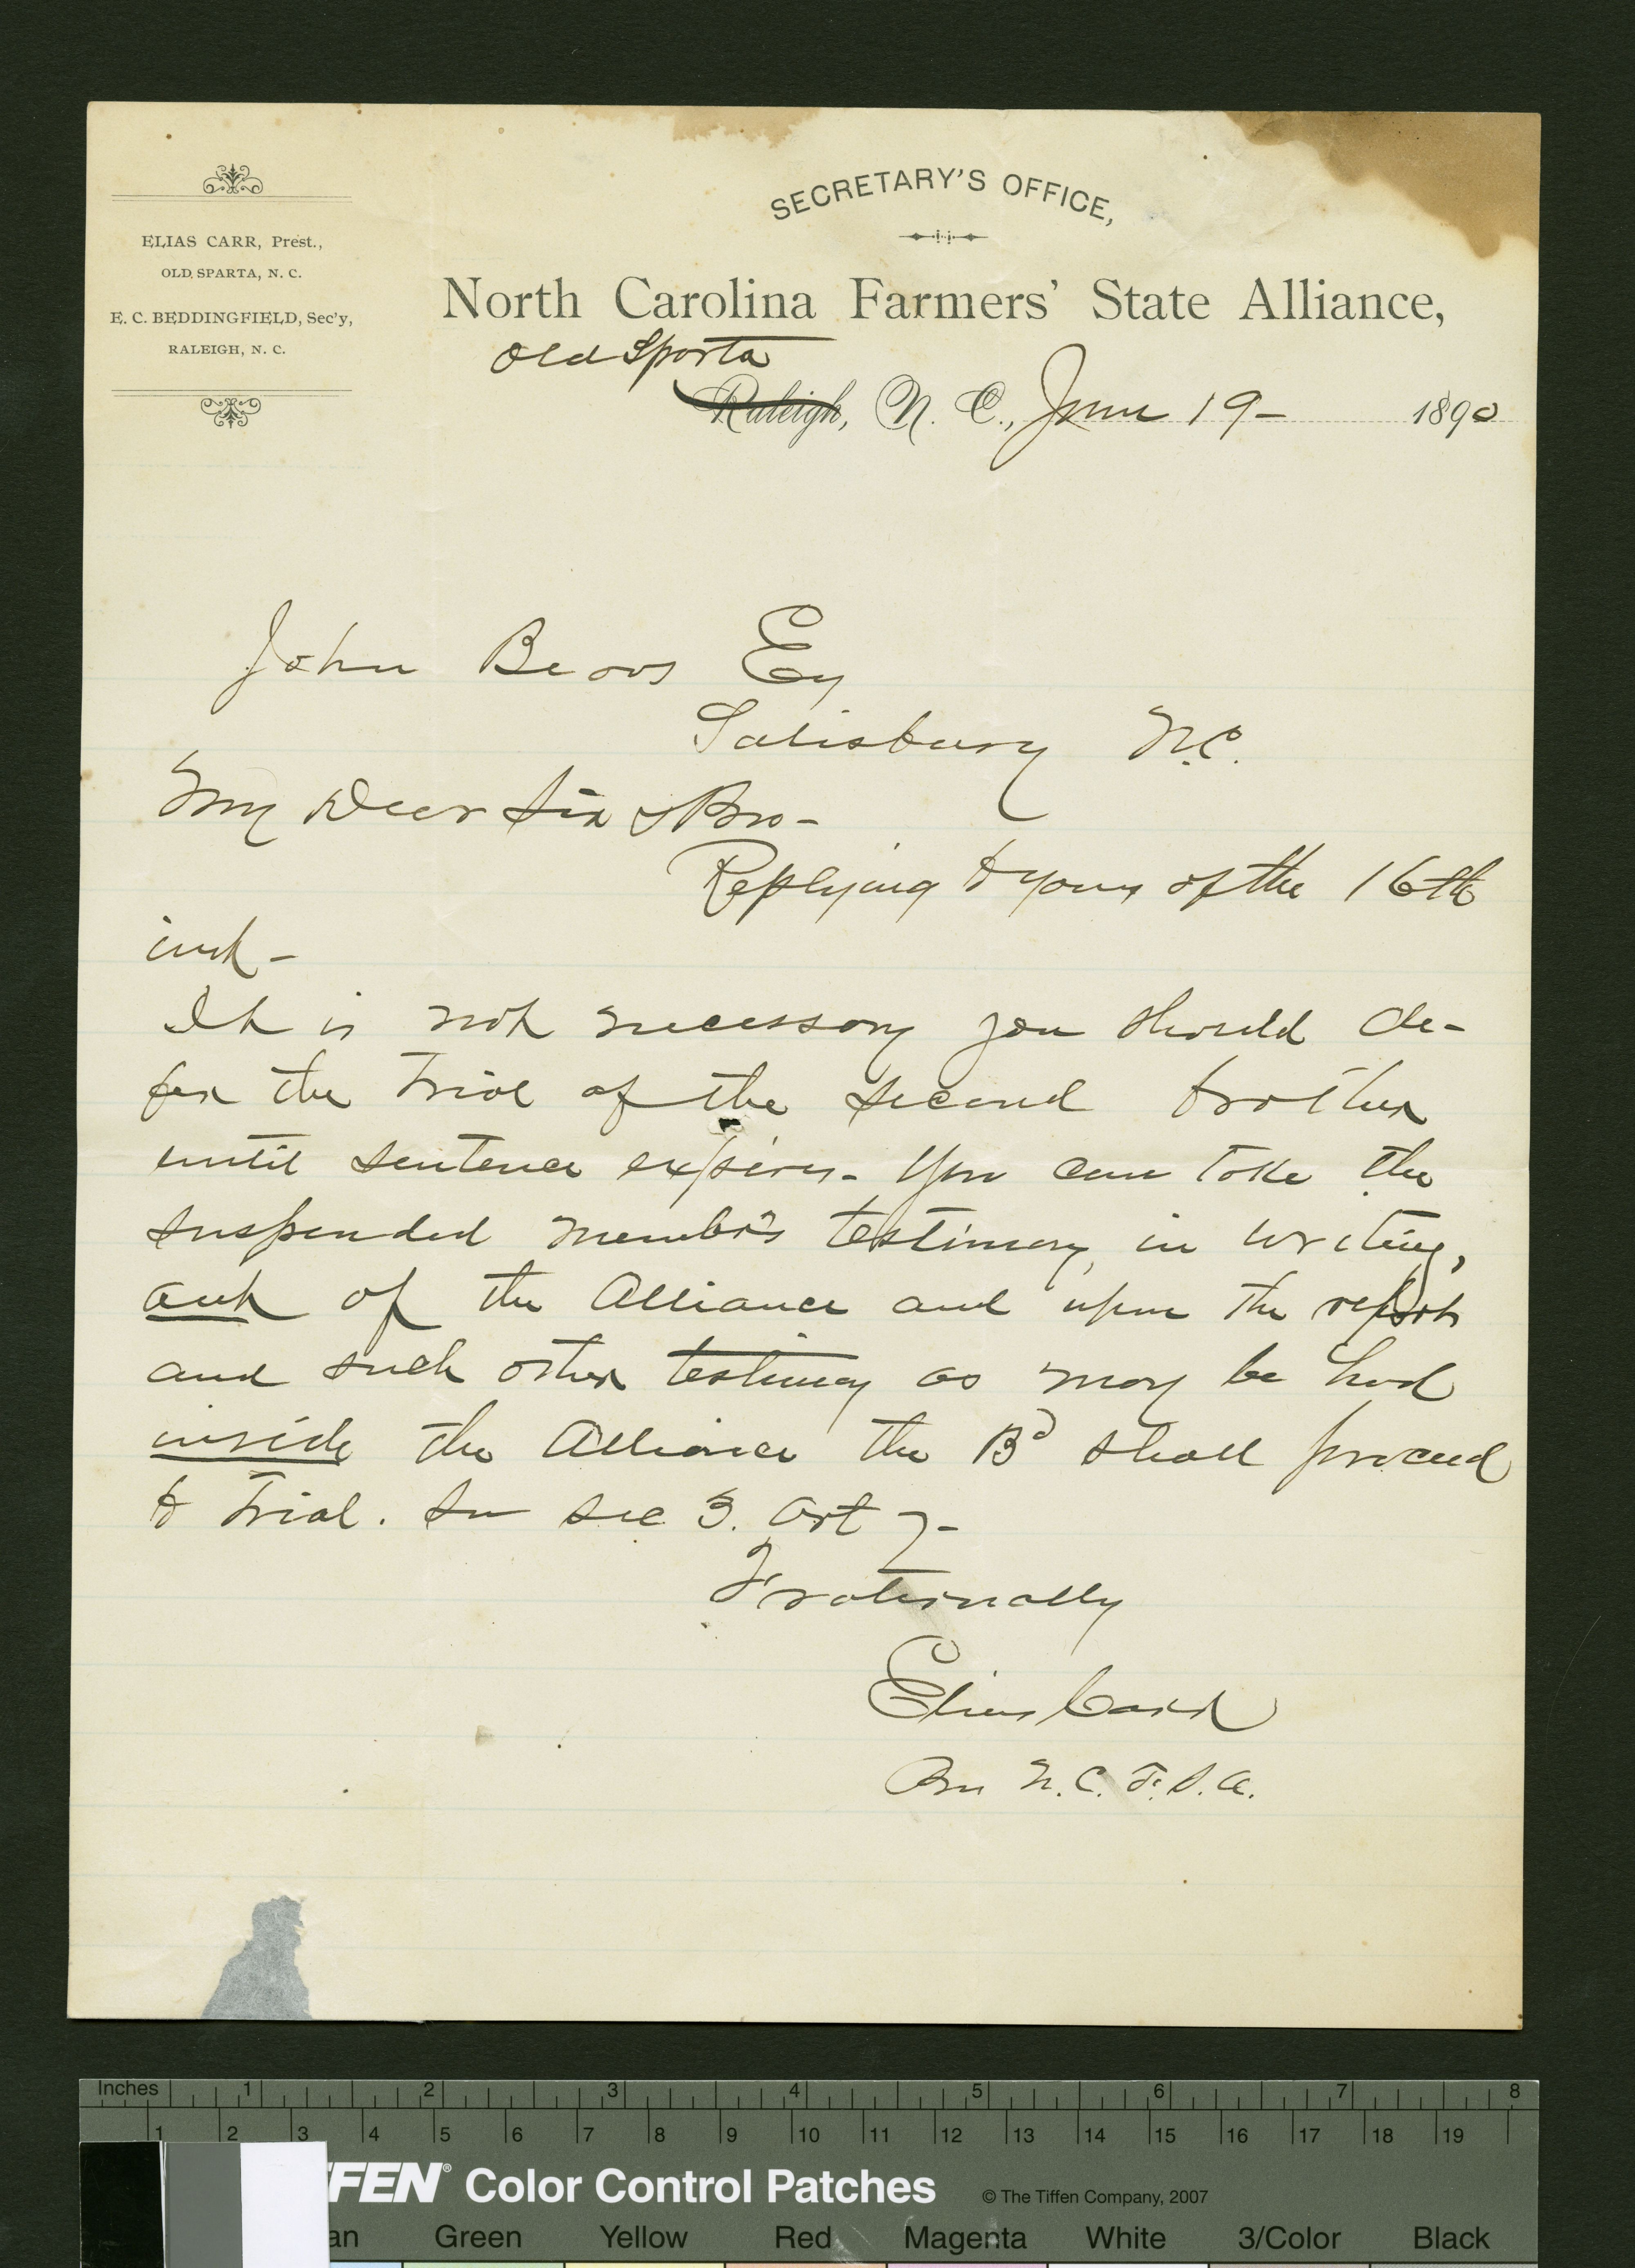 ELIAS CARR, Prest.,
OLD SPARTA, N. C.
E. C. BEDDINGFIELD, Sec'y,
RALEIGH, N. C.
SECRETARY'S OFFICE,
North Carolina Farmers' State Alliance,
Old Sparta
Raleigh, N. C., June 19- 1890
John Esq
Salisbury N.C.
My Dear Sir & Bro-
Replying to yours of the 16th
inst-
It is not necessary you should de-
fer the trial of the second brother
until sentence expires- You can take the
suspended testimony, in writing,
out of the Alliance and upon the report
and such other testimony as may be had
inside the Alliance the Bd shall proceed
to trial. See sec 3. Art 7-
Fraternally
Elias Carr
Pres N.C.F.S.A.
Inches 1 2 3 4 5 6 7 8
1 2 3 4 5 6 7 8 9 10 11 12 13 14 15 16 17 18 19
FFEN® Color Control Patches © The Tiffen Company, 2007
an Green Yellow Red Magenta White 3/Color Black